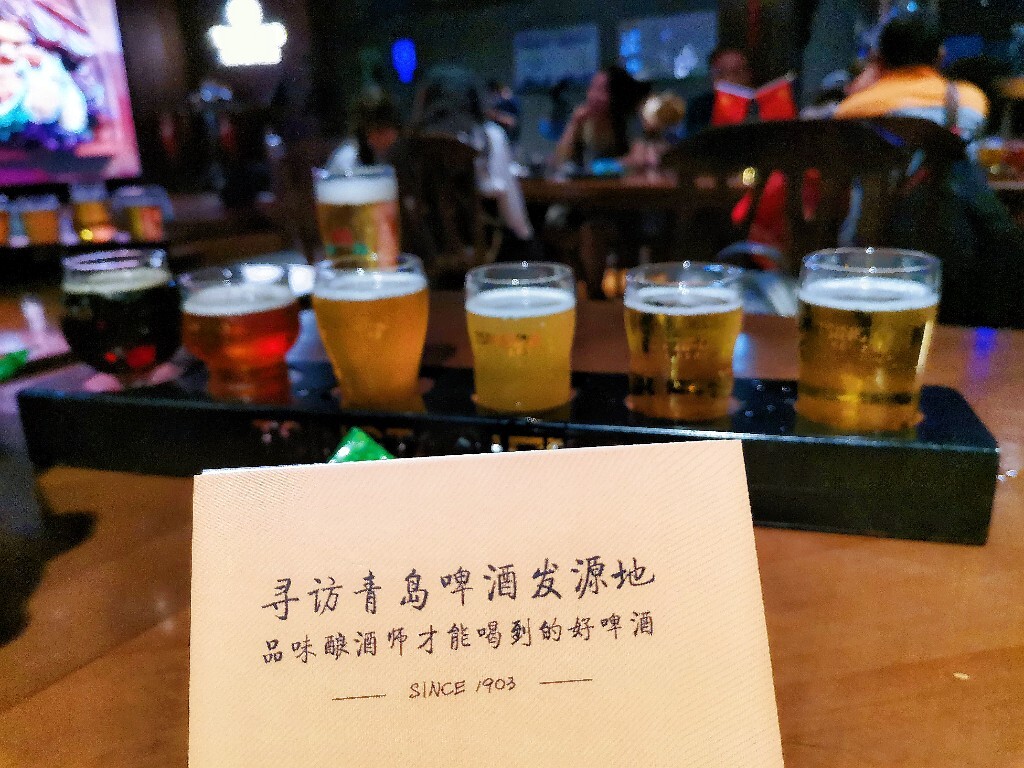 寻访青岛啤酒发源地
品味酿酒师才能喝到的好啤酒
SINCE 1903